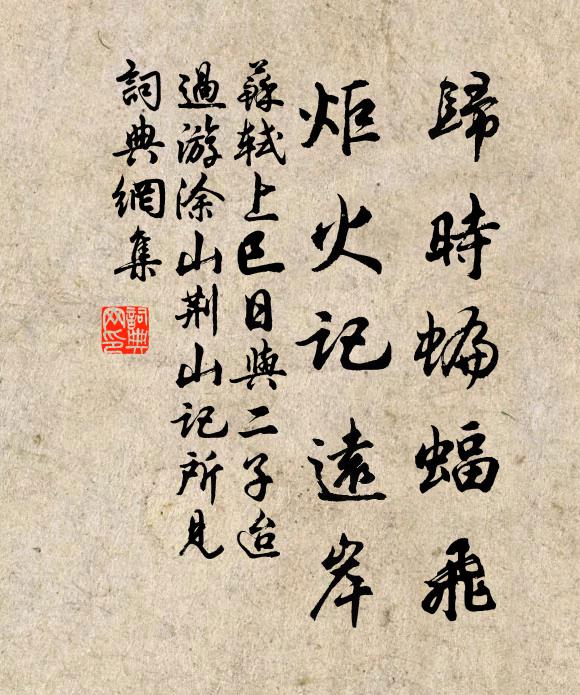 歸時蝙蝠飛
炬火記遠岸
蘇軾上巳日與二子迨
過游涂山荆山記所見
詞典網集
詞典
网印